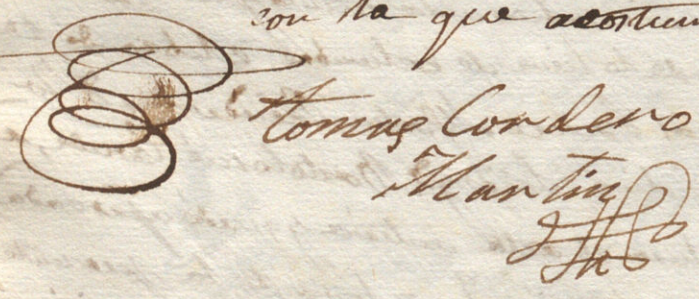 con la que acostum
tomas Cordero
Martin